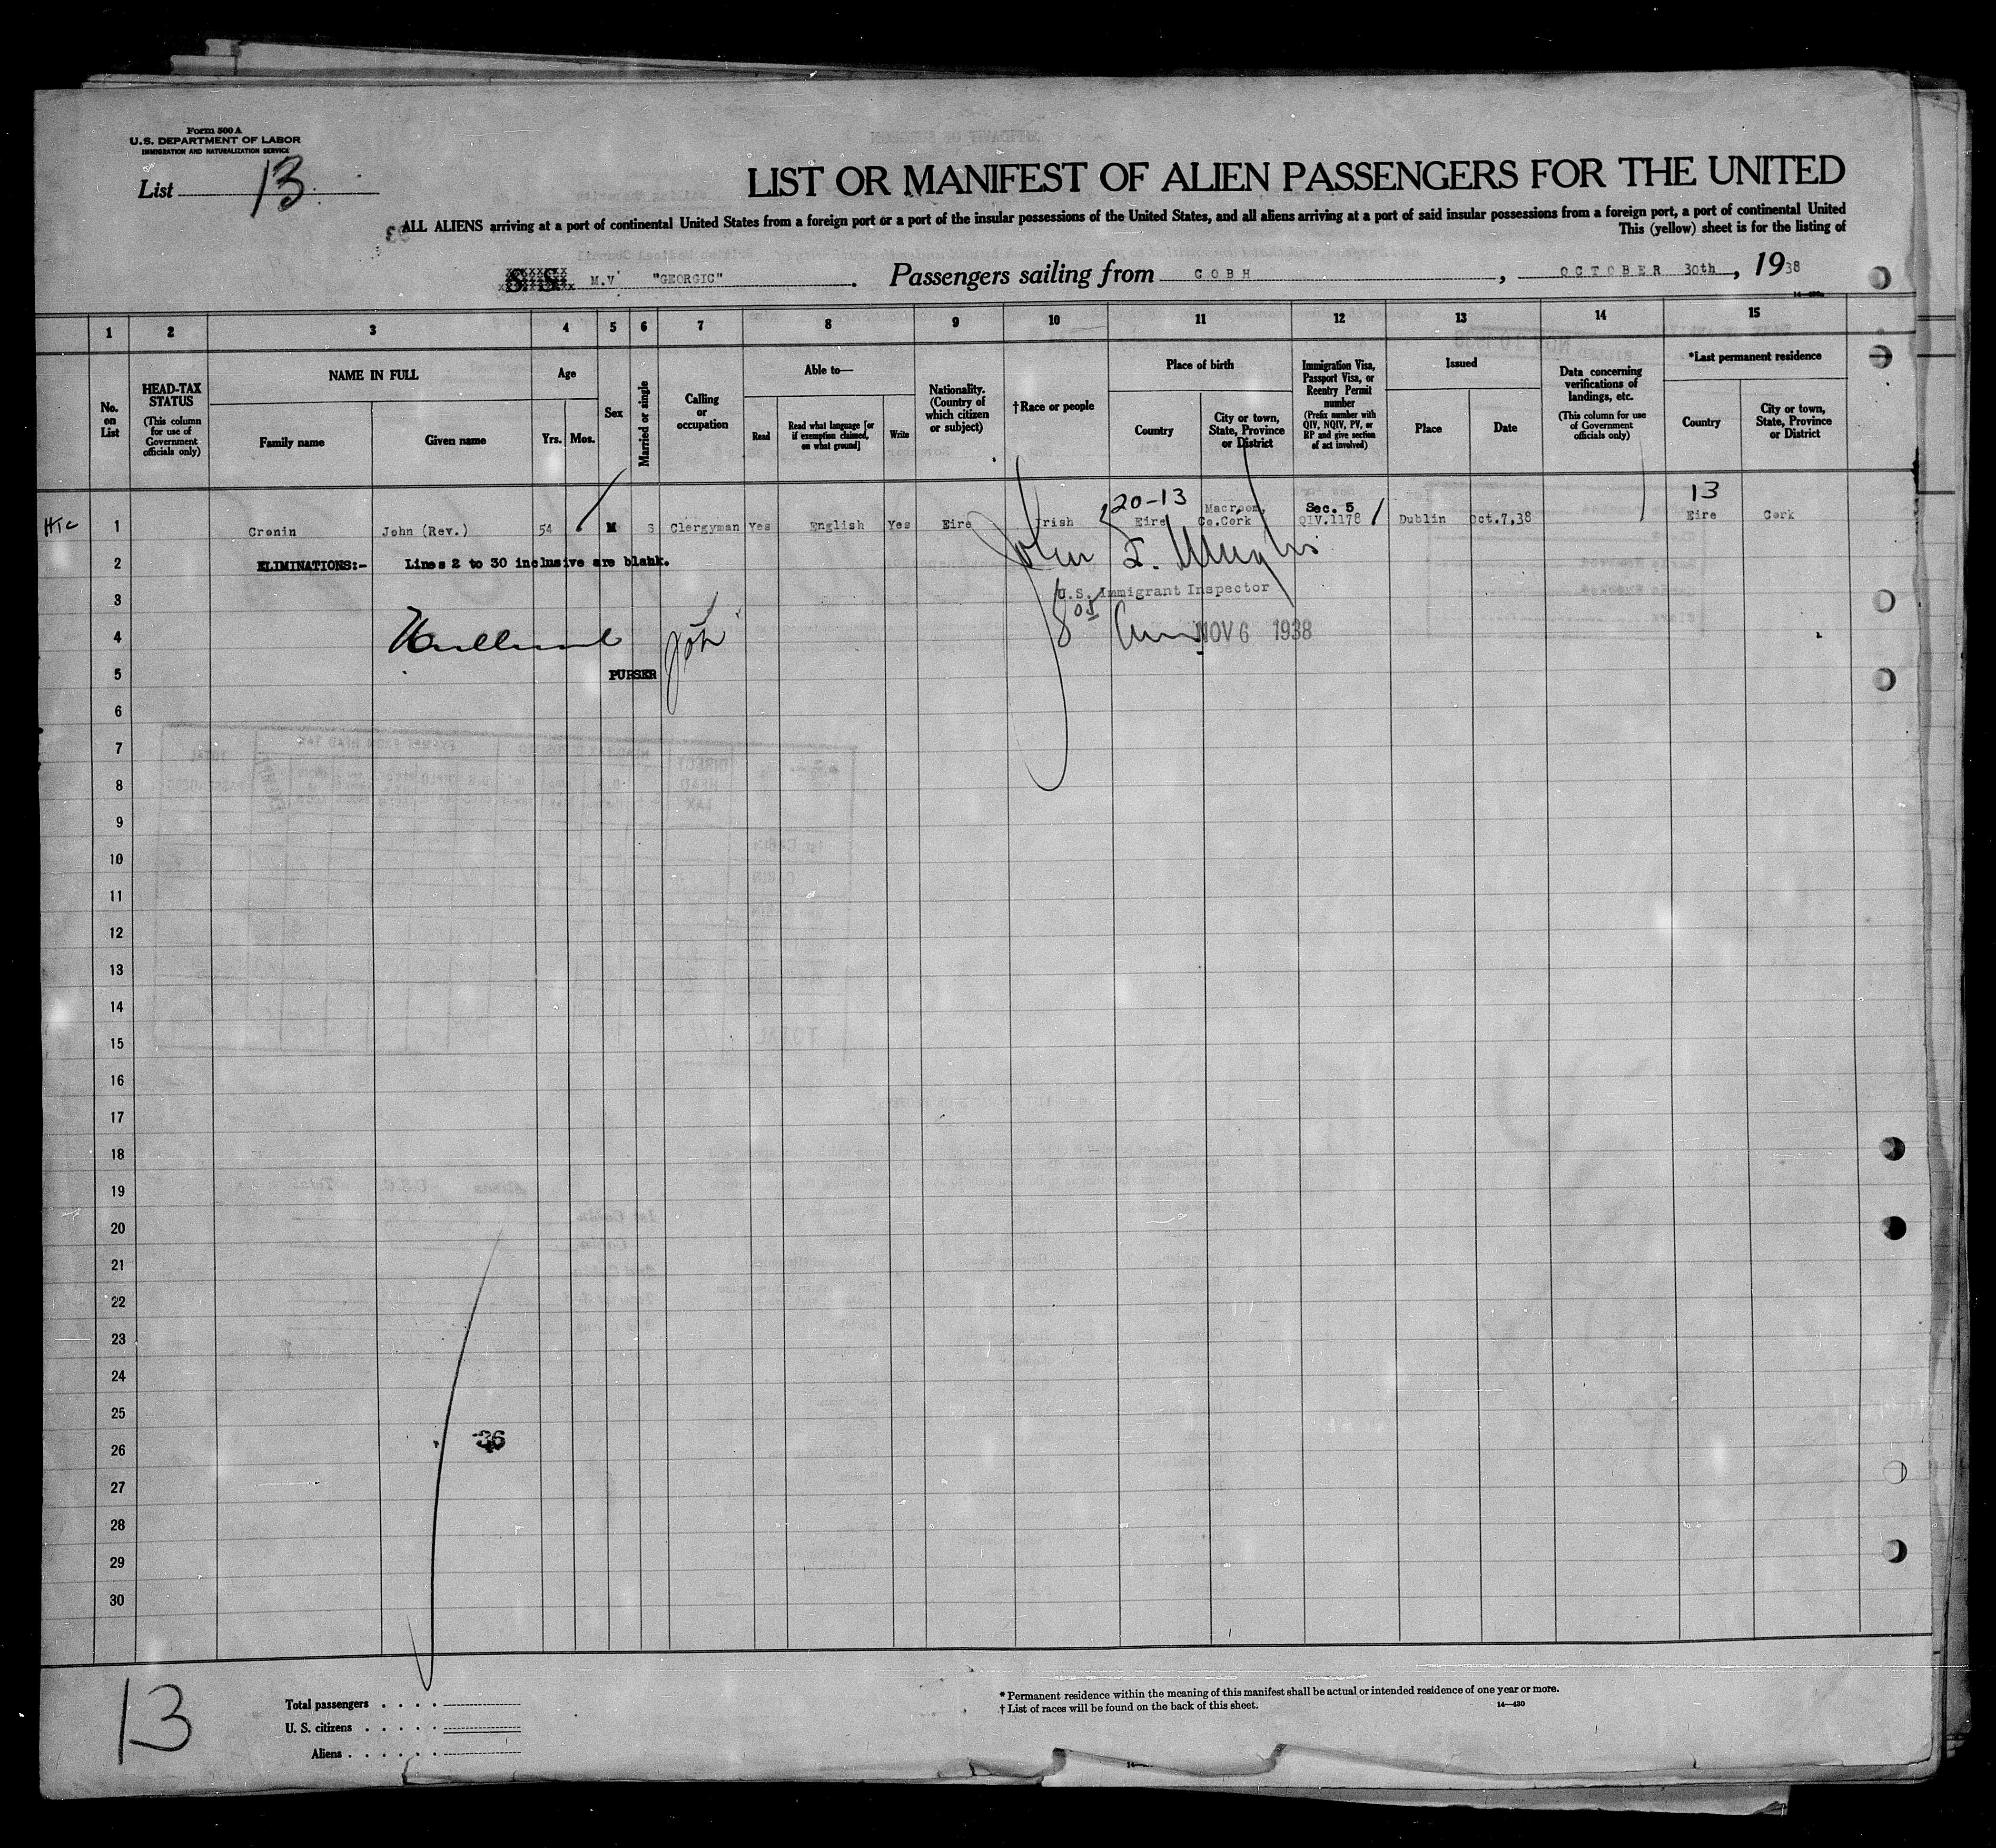 Form 500 A
U.S. DEPARTMENT OF LABOR
IMMIGRATION AND NATURALIZATION SERVICE
List 13
LIST OR MANIFEST OF ALIEN PASSENGERS FOR THE UNITED
ALL ALIENS arriving at a port of continental United States from a foreign port or a port of the insular possessions of the United States, and all aliens arriving at a port of said insular possessions from a foreign port, a port of continental United
This (yellow) sheet is for the listing of
S. S. M.V "GEORGIC". Passengers sailing from COBH, OCTOBER 30th, 1938
1 2 3 4 5 6 7 8 9 10 11 12 13 14 15
No. on List
HEAD-TAX STATUS (This column for use of Government officials only)
NAME IN FULL
Family name
Given name
Age
Yrs. Mos.
Sex
Married or single
Calling or occupation
Able to—
Read
Read what language [or if exemption claimed, on what ground]
Write
Nationality. (Country of which citizen or subject)
†Race or people
Place of birth
Country
City or town, State, Province or District
Immigration Visa, Passport Visa, or Reentry Permit number (Prefix number with QIV, NQIV, PV, or RP and give section of act involved)
Issued
Place
Date
Data concerning verifications of landings, etc. (This column for use of Government officials only)
*Last permanent residence
Country
City or town, State, Province or District
20-13 13
Macroom, Sec. 5
1 Cronin John (Rev.) 54 M S Clergyman Yes English Yes Eire Irish Eire Co.Cork QIV.1178 Dublin Oct.7,38 Eire Cork
2 ELIMINATIONS:- Lines 2 to 30 inclusive are blank.
3 U.S. Immigrant Inspector
4 NOV 6 1938
5 PURSER
6
7
8
9
10
11
12
13
14
15
16
17
18
19
20
21
22
23
24
25
26 36
27
28
29
30
13
Total passengers
U. S. citizens
Aliens
* Permanent residence within the meaning of this manifest shall be actual or intended residence of one year or more.
† List of races will be found on the back of this sheet. 14—430